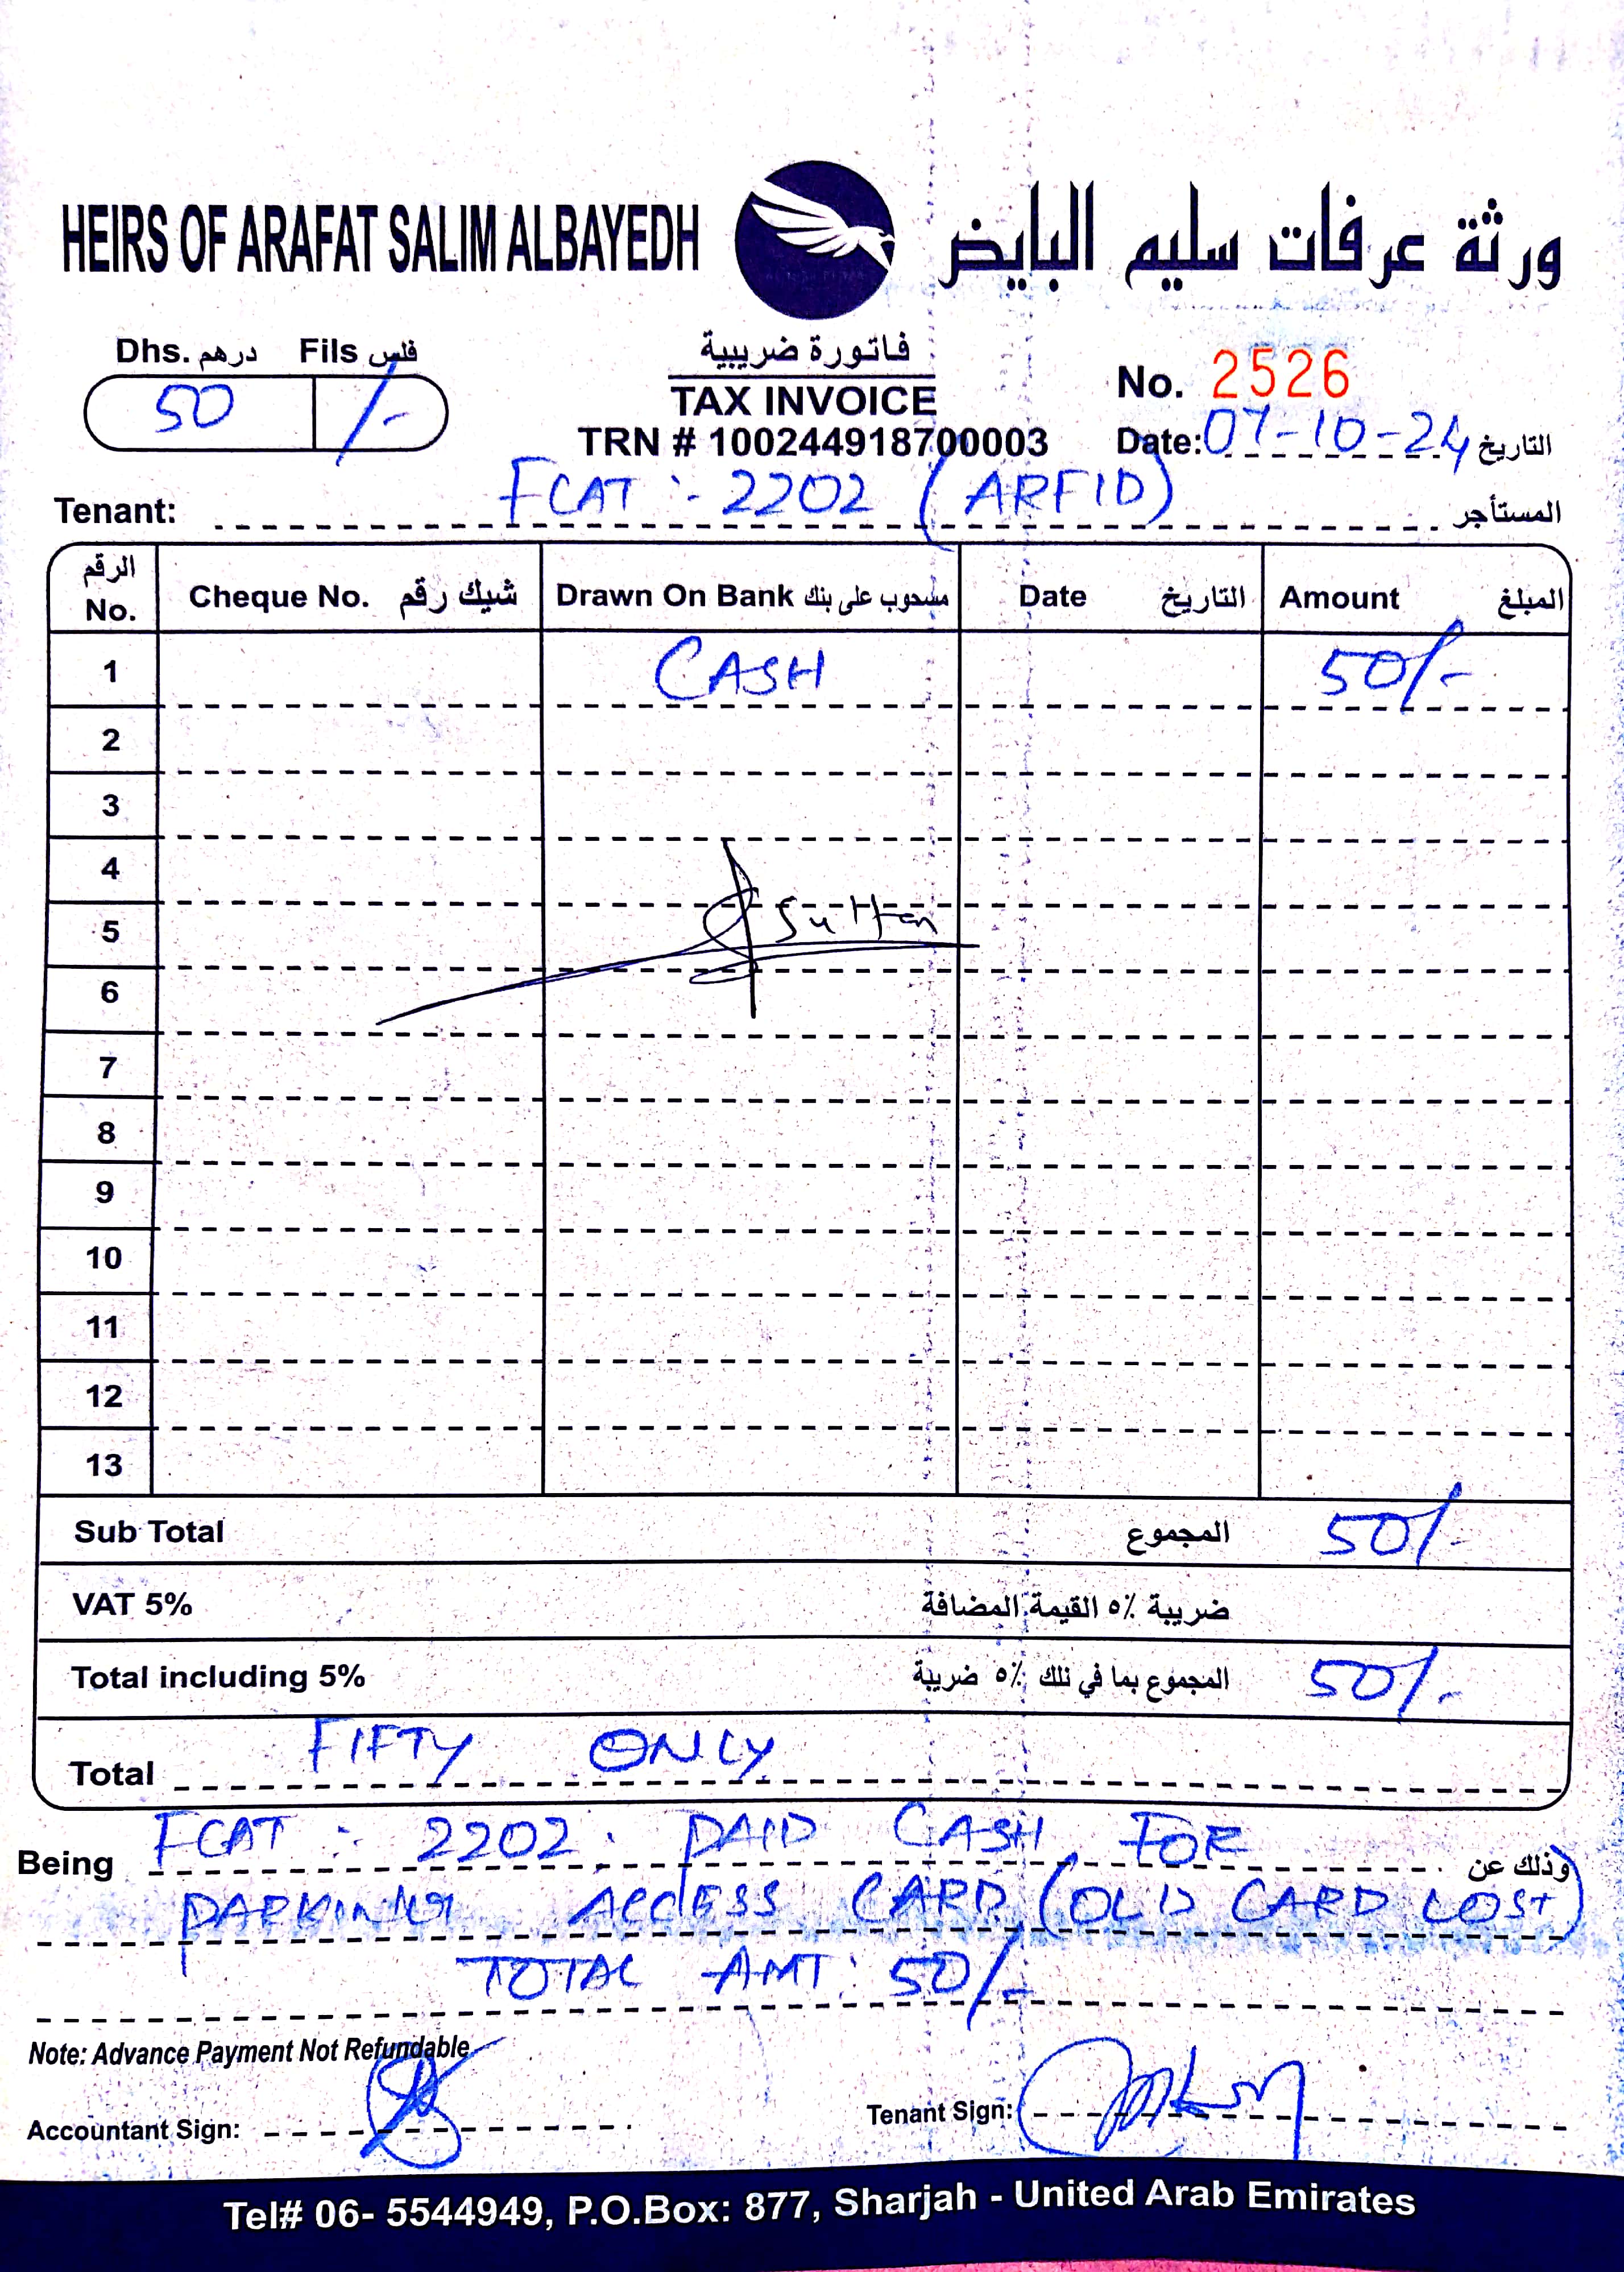 HEIRS OF ARAFAT SALIM ALBAYEDH ورثة عرفات سليم البايض
Dhs. درهم Fils فلس
50 /-
فاتورة ضريبية
TAX INVOICE
TRN # 100244918700003
No. 2526
Date: 07-10-24 التاريخ
Tenant: FCAT :- 2202 (ARFID) المستأجر
الرقم No. Cheque No. شيك رقم Drawn On Bank مسحوب على بنك Date التاريخ Amount المبلغ
1 CASH 50/-
2
3
4
5 Sultan
6
7
8
9
10
11
12
13
Sub Total المجموع 50/-
VAT 5% ضريبة ٥٪ القيمة المضافة
Total including 5% المجموع بما في ذلك ٥٪ ضريبة 50/-
Total FIFTY ONLY
Being FCAT :- 2202. PAID CASH FOR وذلك عن
PARKING ACCESS CARD. (OLD CARD LOST)
TOTAL AMT: 50/-
Note: Advance Payment Not Refundable
Accountant Sign:
Tenant Sign:
Tel# 06- 5544949, P.O.Box: 877, Sharjah - United Arab Emirates